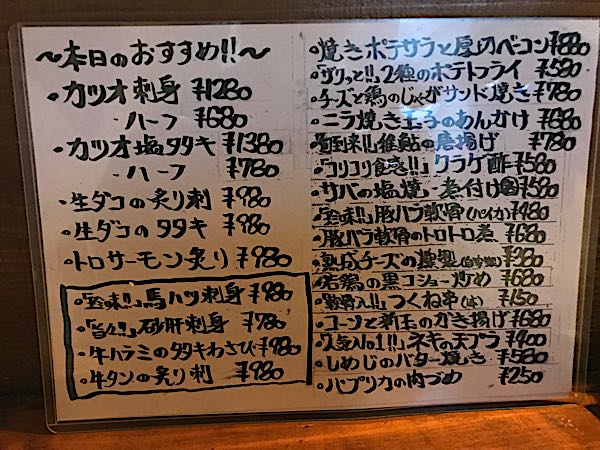 ～本日のおすすめ!!～
・カツオ刺身 ¥1280
・ハーフ ¥680
・カツオ塩タタキ ¥1380
・ハーフ ¥780
・生ダコの炙り刺 ¥980
・生ダコのタタキ ¥980
・トロサーモン炙り ¥980
・「珍味!!」馬ハツ刺身 ¥980
・砂肝刺身 ¥780
・牛ハラミのタタキわさび ¥980
・牛タンの炙り刺 ¥980
・焼きポテサラと厚切ベーコン ¥880
・ザクっと!!2種のポテトフライ ¥580
・チーズと鶏のじゃがサンド焼き ¥780
・ニラ焼き玉子のあんかけ ¥680
・稚鮎の唐揚げ ¥780
・「コリコリ食感!!」クラゲ酢 ¥580
・サバの塩焼・煮付け ¥580
・「珍味!!」豚バラ軟骨(パイカ) ¥480
・豚バラ軟骨のトロトロ煮 ¥680
・熟成チーズの燻製(自家製) ¥380
・若鶏の黒コショー炒め ¥680
・「軟骨入!!」つくね串(1本) ¥150
・コーンと新玉のかき揚げ ¥680
・「人気No.1!!」ネギの天プラ ¥400
・しめじのバター焼き ¥580
・パプリカの肉づめ ¥250